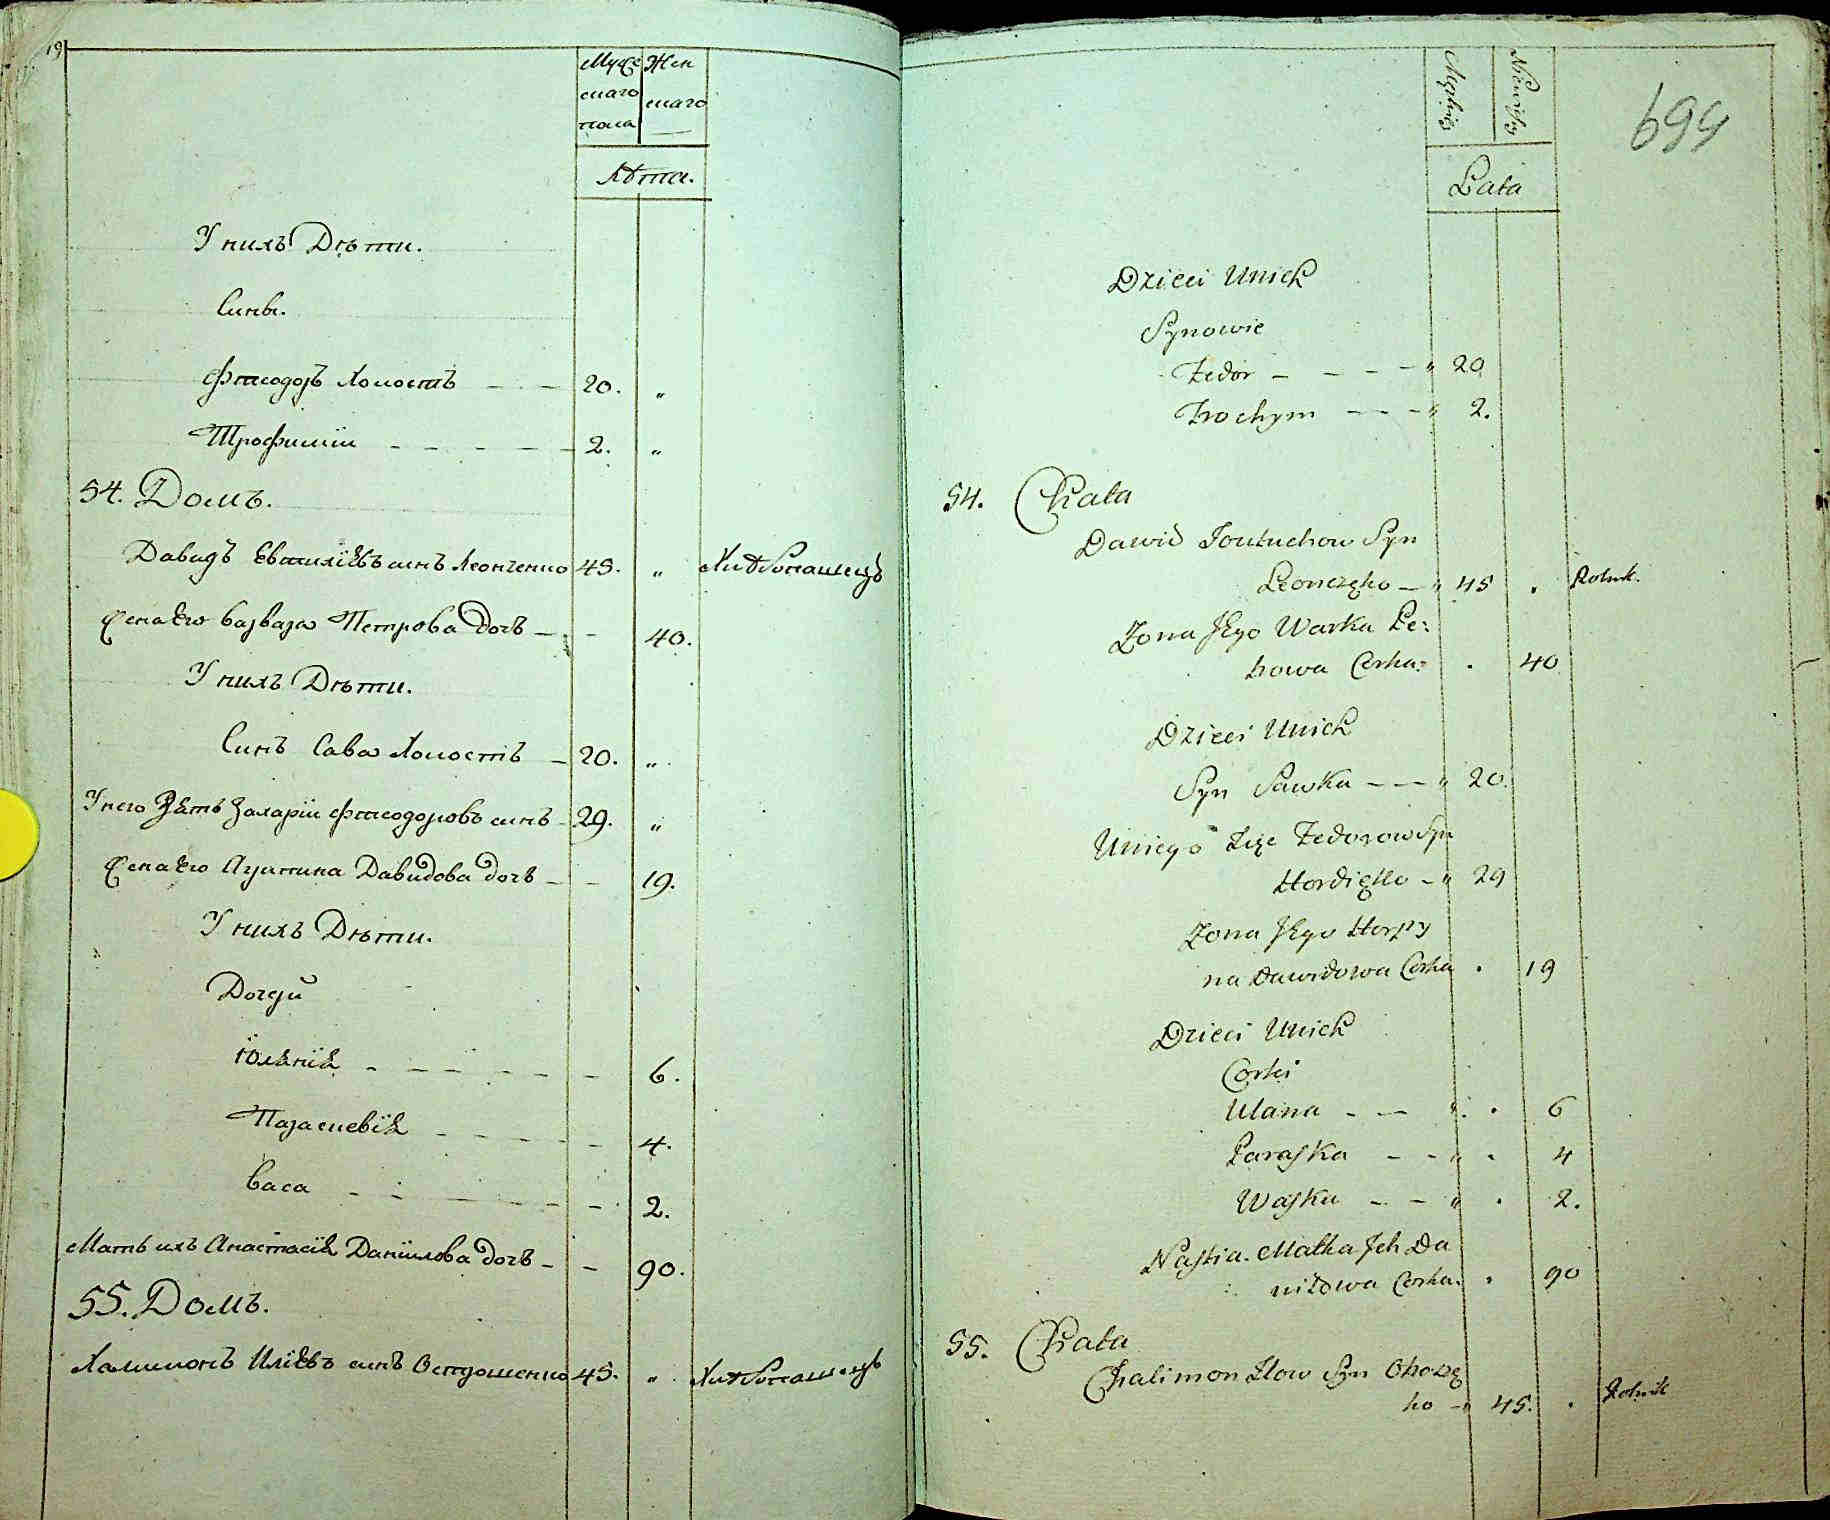 19
Мужескаго пола
Женскаго
Лѣта.
У нихъ Дѣти.
Сины.
Фтеодоръ Холостъ 20. "
Трофимій 2. "
54. Домъ.
Давидъ Евтихіевъ синъ Леонченко 45. " Хлѣбопашецъ
Жена его Варвара Петрова дочъ 40.
У нихъ Дѣти.
Синъ Сава Холостъ 20. "
У него Зять Захарій Фтеодоровъ синъ 29. "
Жена его Агрипина Давидова дочъ 19.
У нихъ Дѣти.
Дочери
Юлянія 6.
Параскевія 4.
Васа 2.
Мать ихъ Анастасія Даніилова дочъ 90.
55. Домъ.
Халимонъ Иліевъ синъ 45. " Хлѣбопашецъ
699
Lata
Dzieci Unich
Synowie
Fedor " 20
Trochym " 2.
54. Chata
Dawid Jowtuchow Syn
Leonczęko " 45 . Rolnik.
Żona Jego Warka Pe:
trowa Corka . 40
Dzieci Unich
Syn Sawka " 20.
Uniego Zięc Fedorow Syn
Hordięko " 29
Żona Jego Horpy
na Dawidowa Corka . 19
Dzieci Unich
Corki
Ulana " . 6
Paraska " . 4
Waska " . 2.
Nastia. Matka Jch Da
niłowa Corka. . 90
55. Chata
Chalimon Jlow Syn
ko " 45. . Rolnik